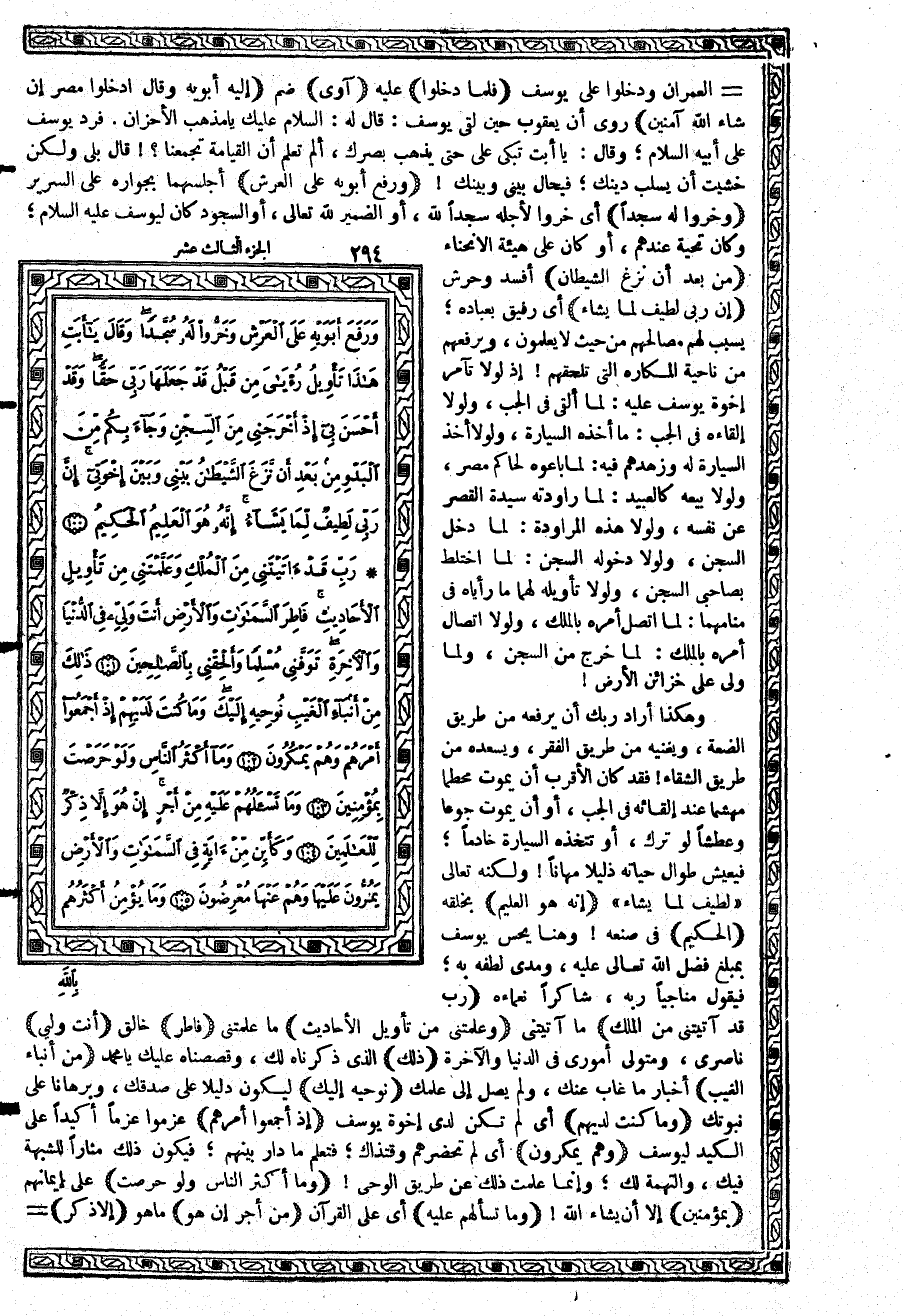 = العمران ودخلوا على يوسف (فلما دخلوا) عليه (آوى) ضم (إليه أبويه وقال ادخلوا مصر إن
شاء الله آمنين) روى أن يعقوب حين لقى يوسف : قال له : السلام عليك يامذهب الأحزان . فرد يوسف
على أبيه السلام ؛ وقال : ياأبت تبكى على حتى يذهب بصرك ، ألم تعلم أن القيامة تجمعنا ؟ ! قال بلى ولكن
خشيت أن يسلب دينك ؛ فيحال بينى وبينك ! (ورفع أبويه على العرش) أجلسهما بجواره على السرير
(وخروا له سجداً) أى خروا لأجله سجداً لله ، أو الضمير لله تعالى ، أوالسجود كان ليوسف عليه السلام ؛
وكان تحية عندهم ، أو كان على هيئة الانحناء
(من بعد أن نزغ الشيطان) أفسد وحرش
(إن ربى لطيف لما يشاء) أى رفيق بعباده ؛
يسبب لهم مصالحهم من حيث لايعلمون ، ويرفعهم
من ناحية المكاره التى تلحقهم ! إذ لولا تآمر
إخوة يوسف عليه : لما ألقى فى الجب ، ولولا
إلقاءه فى الجب : ما أخذه السيارة ، ولولاأخذ
السيارة له وزهدهم فيه: لماباعوه لحاكم مصر ،
ولولا بيعه كالعبيد : لما راودته سيدة القصر
عن نفسه ، ولولا هذه المراودة : لما دخل
السجن ، ولولا دخوله السجن : لما اختلط
بصاحبى السجن ، ولولا تأويله لهما ما رأياه فى
منامهما : لما اتصل أمره بالملك ، ولولا اتصال
أمره بالملك : لما خرج من السجن ، ولما
ولى على خزائن الأرض !
وهكذا أراد ربك أن يرفعه من طريق
الضعة ، ويغنيه من طريق الفقر ، ويسعده من
طريق الشقاء! فقد كان الأقرب أن يموت محطما
مهشما عند إلقائه فى الجب ، أو أن يموت جوعا
وعطشاً لو ترك ، أو تتخذه السيارة خادماً ؛
فيعيش طوال حياته ذليلا مهاناً ! ولكنه تعالى
«لطيف لما يشاء» (إنه هو العليم) بخلقه
(الحكيم) فى صنعه ! وهنا يحس يوسف
بمبلغ فضل الله تعالى عليه ، ومدى لطفه به ؛
فيقول مناجياً ربه ، شاكراً نعماءه (رب
٢٩٤ الجزء الثالث عشر
وَرَفَعَ أَبَوَيْهِ عَلَى ٱلْعَرْشِ وَخَرُّوا۟ لَهُۥ سُجَّدًا ۖ وَقَالَ يَٰٓأَبَتِ
هَٰذَا تَأْوِيلُ رُءْيَٰىَ مِن قَبْلُ قَدْ جَعَلَهَا رَبِّى حَقًّا ۖ وَقَدْ
أَحْسَنَ بِىٓ إِذْ أَخْرَجَنِى مِنَ ٱلسِّجْنِ وَجَآءَ بِكُم مِّنَ
ٱلْبَدْوِ مِنۢ بَعْدِ أَن نَّزَغَ ٱلشَّيْطَٰنُ بَيْنِى وَبَيْنَ إِخْوَتِىٓ ۚ إِنَّ
رَبِّى لَطِيفٌ لِّمَا يَشَآءُ ۚ إِنَّهُۥ هُوَ ٱلْعَلِيمُ ٱلْحَكِيمُ ﴿١٠٠﴾
* رَبِّ قَدْ ءَاتَيْتَنِى مِنَ ٱلْمُلْكِ وَعَلَّمْتَنِى مِن تَأْوِيلِ
ٱلْأَحَادِيثِ ۚ فَاطِرَ ٱلسَّمَٰوَٰتِ وَٱلْأَرْضِ أَنتَ وَلِىِّۦ فِى ٱلدُّنْيَا
وَٱلْءَاخِرَةِ ۖ تَوَفَّنِى مُسْلِمًا وَأَلْحِقْنِى بِٱلصَّٰلِحِينَ ﴿١٠١﴾ ذَٰلِكَ
مِنْ أَنۢبَآءِ ٱلْغَيْبِ نُوحِيهِ إِلَيْكَ ۖ وَمَا كُنتَ لَدَيْهِمْ إِذْ أَجْمَعُوٓا۟
أَمْرَهُمْ وَهُمْ يَمْكُرُونَ ﴿١٠٢﴾ وَمَآ أَكْثَرُ ٱلنَّاسِ وَلَوْ حَرَصْتَ
بِمُؤْمِنِينَ ﴿١٠٣﴾ وَمَا تَسْـَٔلُهُمْ عَلَيْهِ مِنْ أَجْرٍ ۚ إِنْ هُوَ إِلَّا ذِكْرٌ
لِّلْعَٰلَمِينَ ﴿١٠٤﴾ وَكَأَيِّن مِّنْ ءَايَةٍ فِى ٱلسَّمَٰوَٰتِ وَٱلْأَرْضِ
يَمُرُّونَ عَلَيْهَا وَهُمْ عَنْهَا مُعْرِضُونَ ﴿١٠٥﴾ وَمَا يُؤْمِنُ أَكْثَرُهُم
بِٱللَّهِ
قد آتيتنى من الملك) ما آتيتنى (وعلمتنى من تأويل الأحاديث) ما علمتنى (فاطر) خالق (أنت وليى)
ناصرى ، ومتولى أمورى فى الدنيا والآخرة (ذلك) الذى ذكرناه لك ، وقصصناه عليك يامحمد (من أنباء
الغيب) أخبار ما غاب عنك ، ولم يصل إلى علمك (نوحيه إليك) ليكون دليلا على صدقك ، وبرهانا على
نبوتك (وما كنت لديهم) أى لم تكن لدى إخوة يوسف (إذ أجمعوا أمرهم) عزموا عزماً أكيداً على
الكيد ليوسف (وهم يمكرون) أى لم تحضرهم وقتذاك ؛ فتعلم ما دار بينهم ؛ فيكون ذلك مثاراً للشبهة
فيك ، والتهمة لك ؛ وإنما علمت ذلك عن طريق الوحى ! (وما أكثر الناس ولو حرصت) على إيمانهم
(بمؤمنين) إلا أن يشاء الله ! (وما تسألهم عليه) أى على القرآن (من أجر إن هو) ماهو (إلاذكر) =